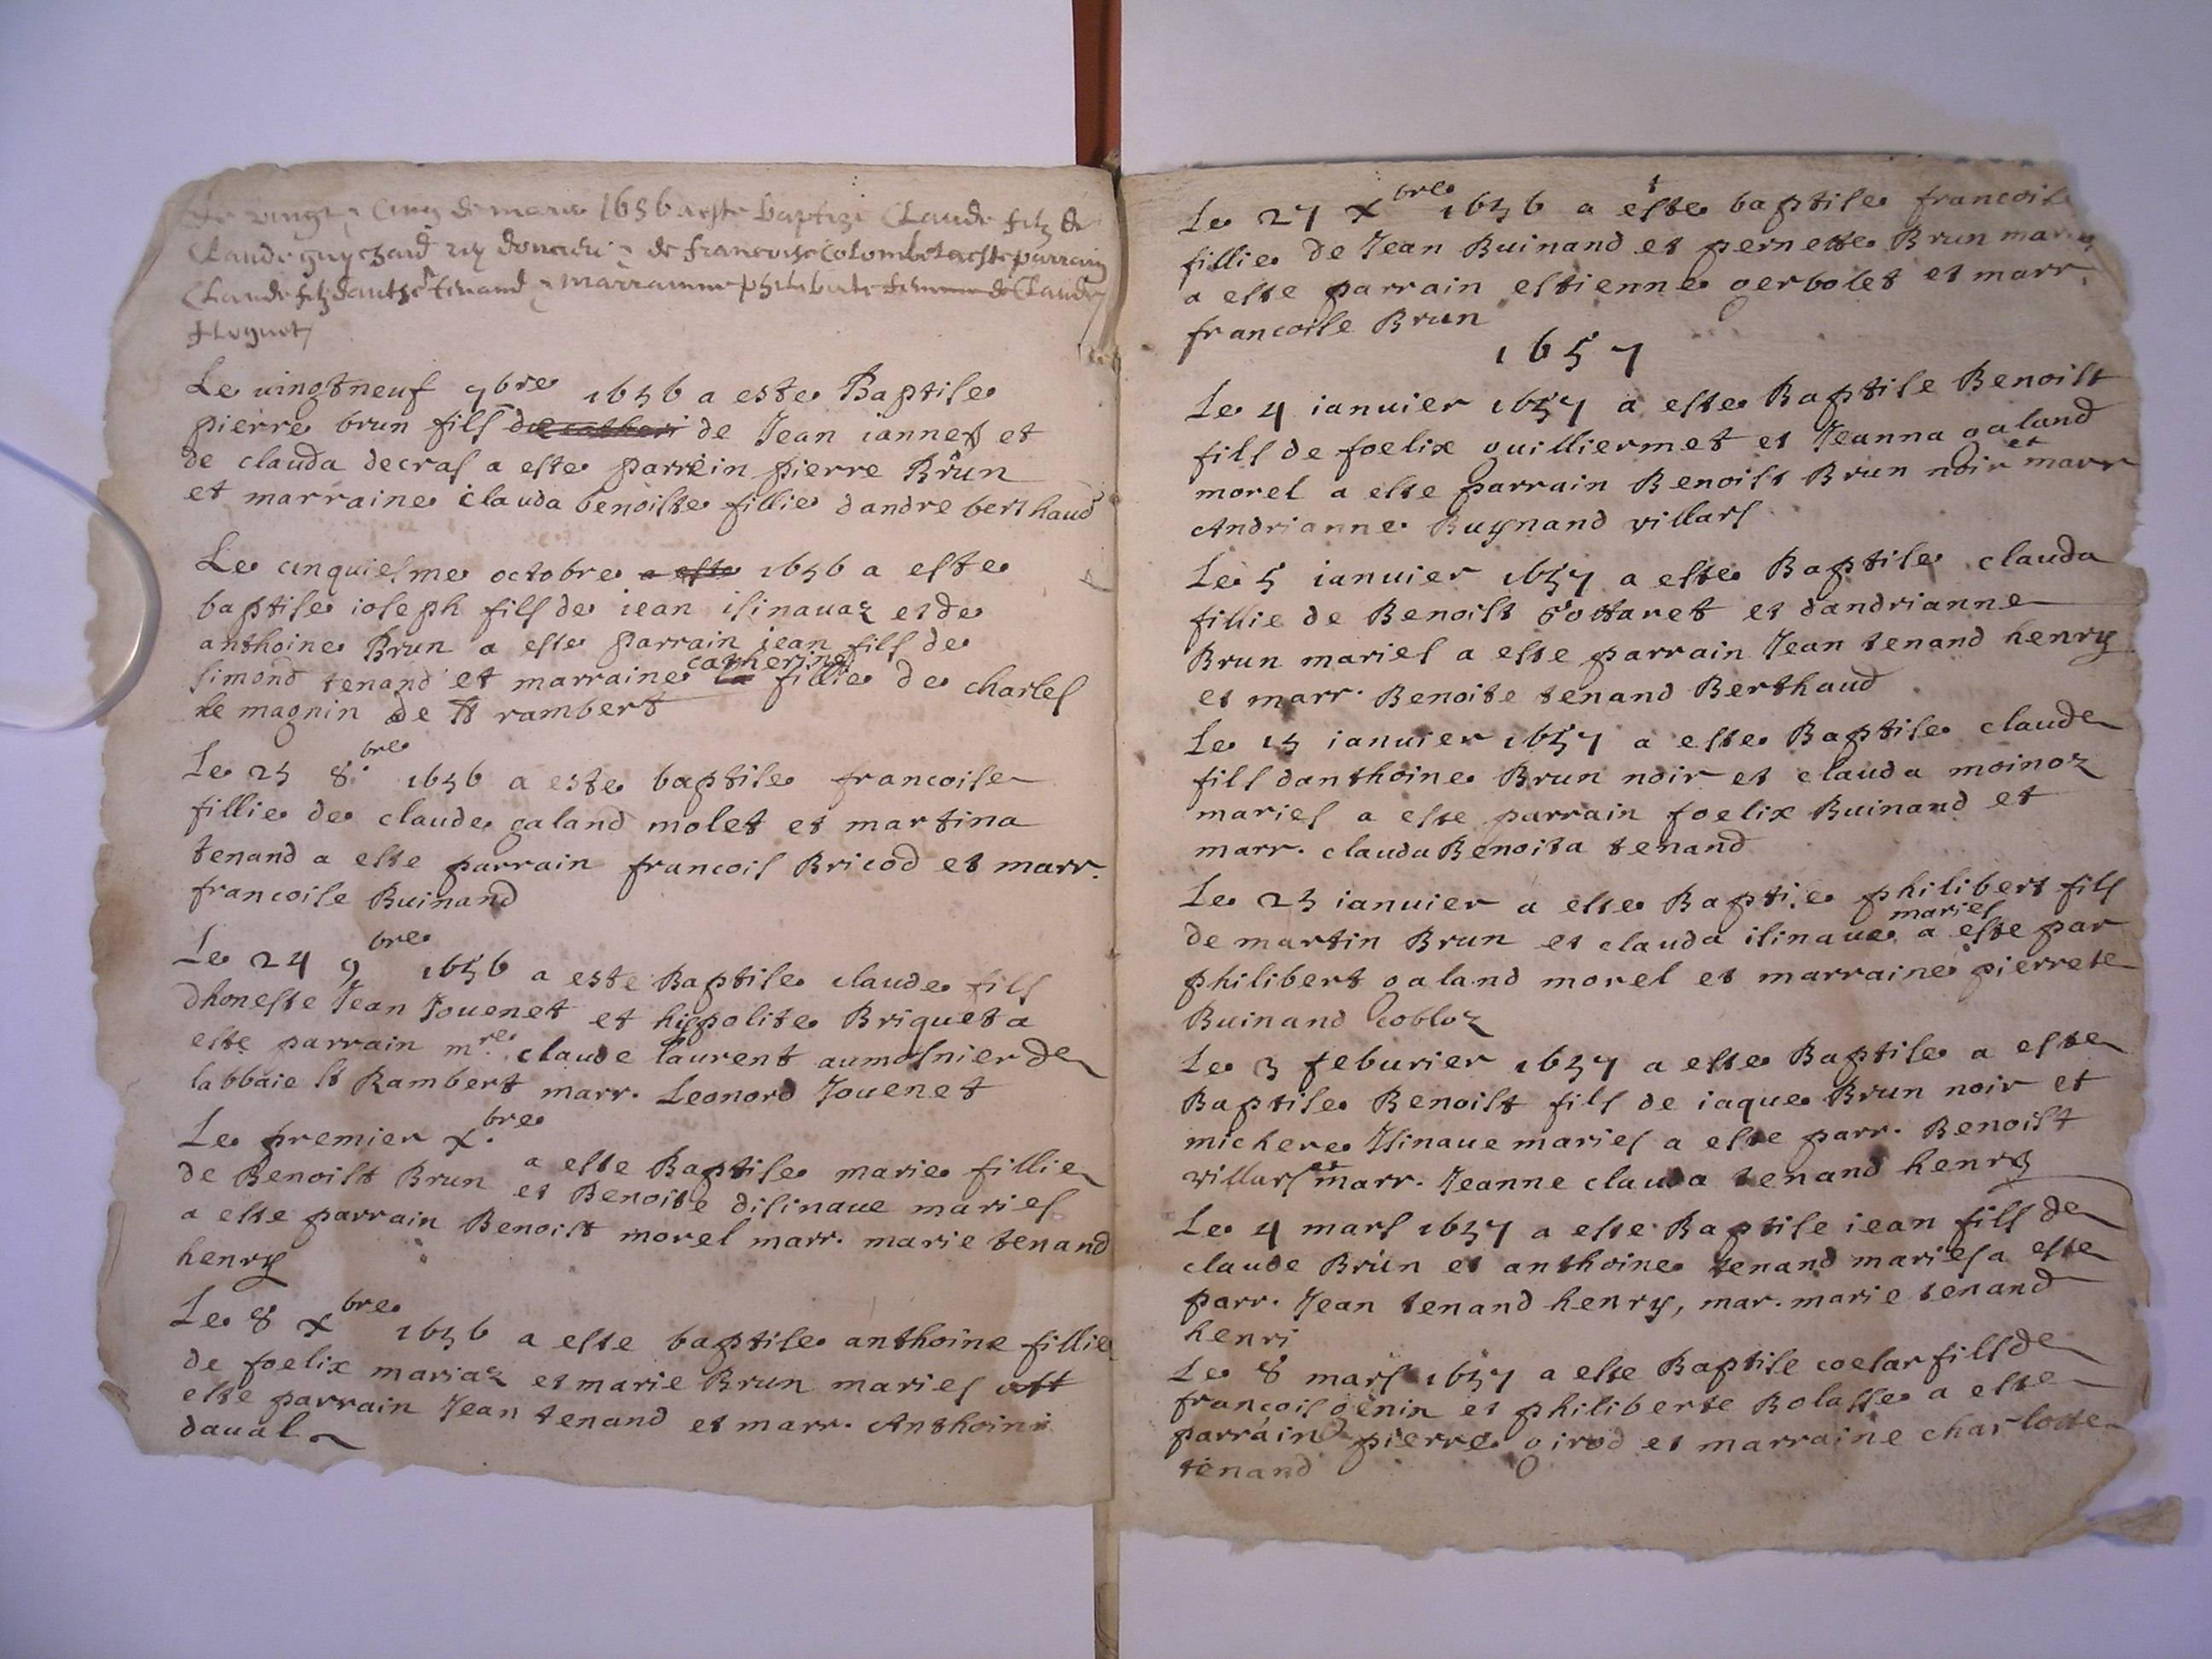 Le vingt cinq de mars 1656 a este baptize Claude filz de
Claude guychard de francoise Colombet a este parrain
Claude filz danthe tenand marrainne philiberte femme de Claude

Le uingtneuf 7bre 1656 a este Baptise
pierre brun fils de Jean iannet et
de clauda decras a este parrein pierre Brun
et marraine clauda benoiste fillie dandre berthaud
Le cinquiesme octobre a este 1656 a este
baptise ioseph fils de iean isinauaz et de
anthoine Brun a este parrain iean fils de
simond tenand et marraine la catherine fillie de charles
le magnin de st rambert
Le 25 8.bre 1656 a este baptise francoise
fillie de claude galand molet et martina
tenand a este parrain francois Bricod et marr.
francoise Buinand
Le 24 9bre 1656 a este Baptise claude fils
dhoneste Jean Jouenet et hippolite Briquet a
este parrain mre. claude laurent aumosnier de
labbaie st Rambert marr. Leonord Jouenet
Le premier x.bre a este Baptise marie fillie
de Benoist Brun et Benoite disinaue maries
a este parrain Benoist morel marr. marie tenand
henry
Le 8 xbre 1656 a este baptise anthoine fillie
de foelix mariaz et marie Brun maries
este parrain Jean tenand et marr. Anthoine
daual
Le 27 xbre 1656 a este baptise francoise
fillie de Jean Buinand et pernette Brun maries
a este parrain estienne gerbolet et marr.
francoise Brun
1657
Le 4 ianuier 1657 a este Baptise Benoist
fils de foelix guilliermet et Jeanna galand
morel a este parrain Benoist Brun noir et marr
Andrianne Buynand villars
Le 5 ianuier 1657 a este Baptise clauda
fillie de Benoist gottaret et dandrianne
Brun maries a este parrain Jean tenand henry
et marr. Benoite tenand Berthaud
Le 15 ianuier 1657 a este Baptise claude
fils danthoine Brun noir et clauda moinoz
maries a este parrain foelix Buinand et
marr. clauda Benoita tenand
Le 25 ianuier a este Baptise philibert fils
de martin Brun et clauda isinaue maries a este par
philibert galand morel et marraine pierrete
Buinand gobloz
Le 3 feburier 1657 a este Baptise a este
Baptise Benoist fils de iaque Brun noir et
michere Isinaue maries a este parr. Benoist
villars et marr. Jeanne clauda tenand henry
Le 4 mars 1657 a este Baptise iean fils de
claude Brun et anthoine tenand maries a este
parr. Jean tenand henry, mar. marie tenand
henri
Le 8 mars 1657 a este Baptise coesar fils de
françois genin et philiberte Bolasse a este
parrain pierre girod et marraine charlotte
tenand